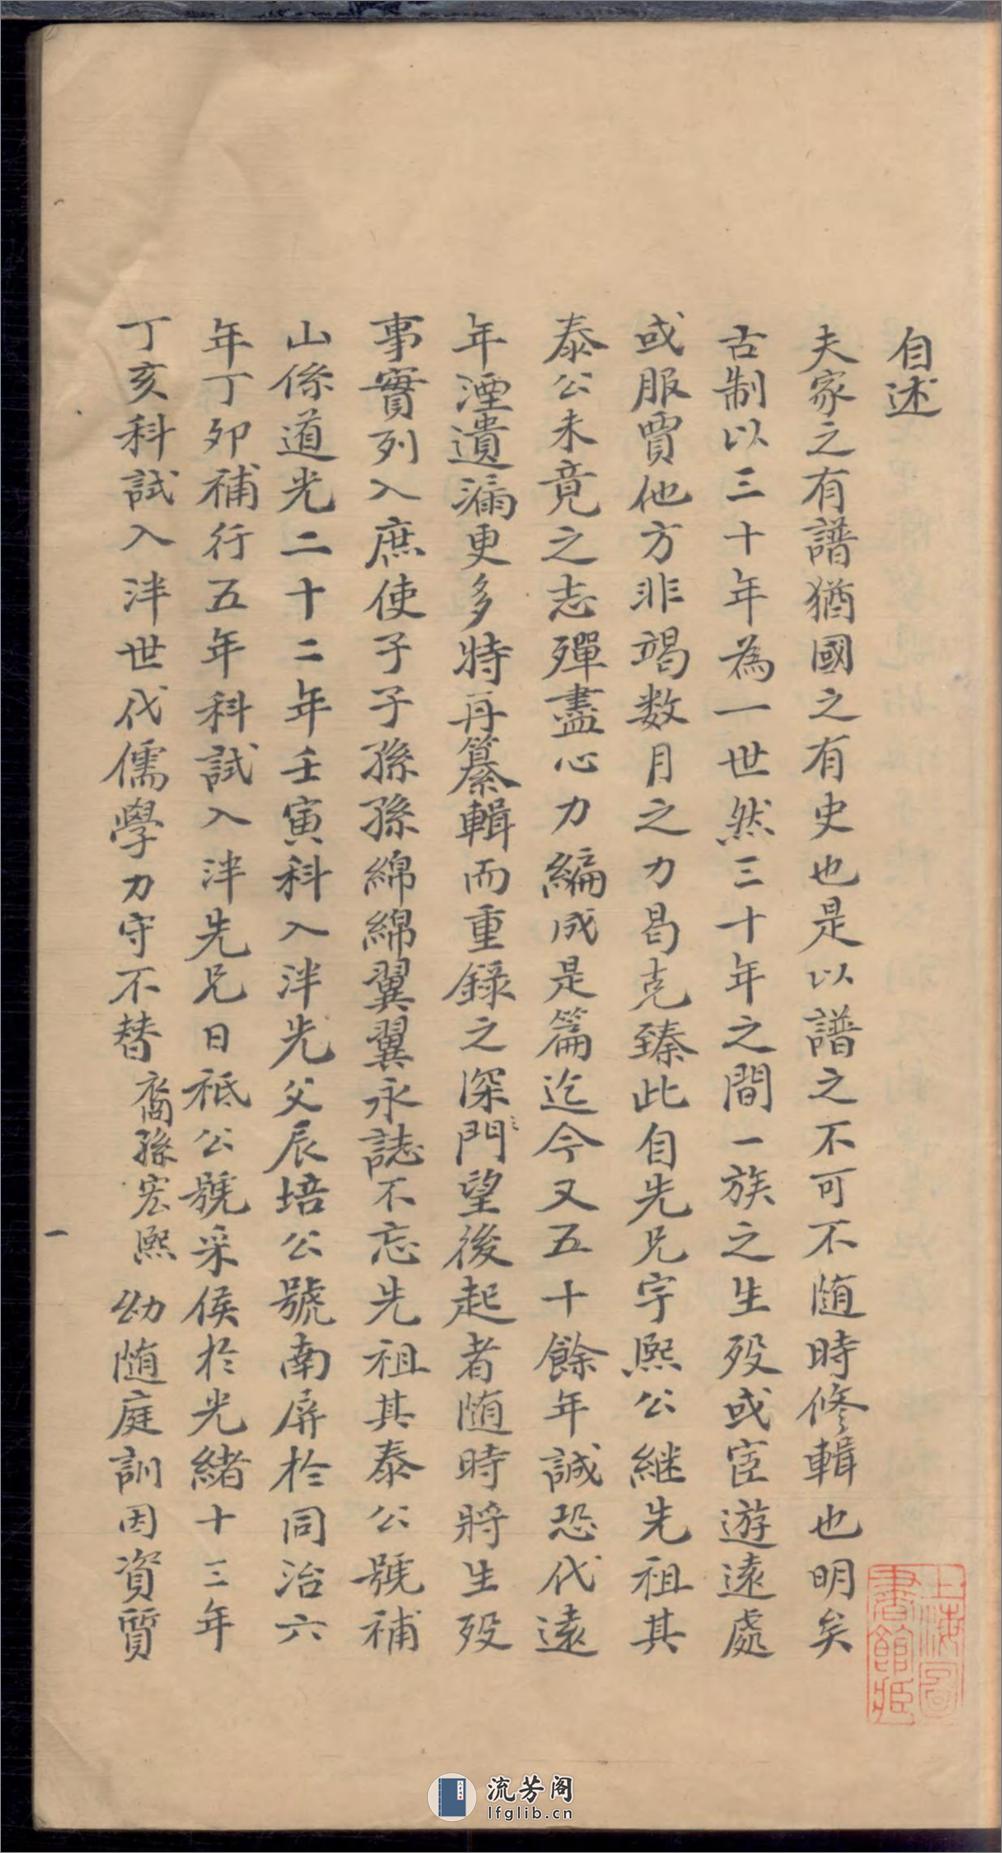 自述
夫家之有譜猶國之有史也是以譜之不可不随時修輯也明矣
古制以三十年為一世然三十年之間一族之生殁或宦遊遠處
或服賈他方非竭数月之力曷克臻此自先兄字熙公継先祖其
泰公未竟之志殫盡心力編成是篇迄今又五十餘年誠恐代遠
年湮遺漏更多特再纂輯而重錄之深門望後起者随時將生殁
事實列入庶使子子孫孫綿綿翼翼永誌不忘先祖其泰公號補
山係道光二十二年壬寅科入泮先父辰培公號南屏於同治六
年丁卯補行五年科試入泮先兄日祗公號采侯於光緒十三年
丁亥科試入泮世代儒學力守不替裔孫宏熙幼随庭訓因資質
一
上海圖書館藏
流芳阁
lfglib.cn